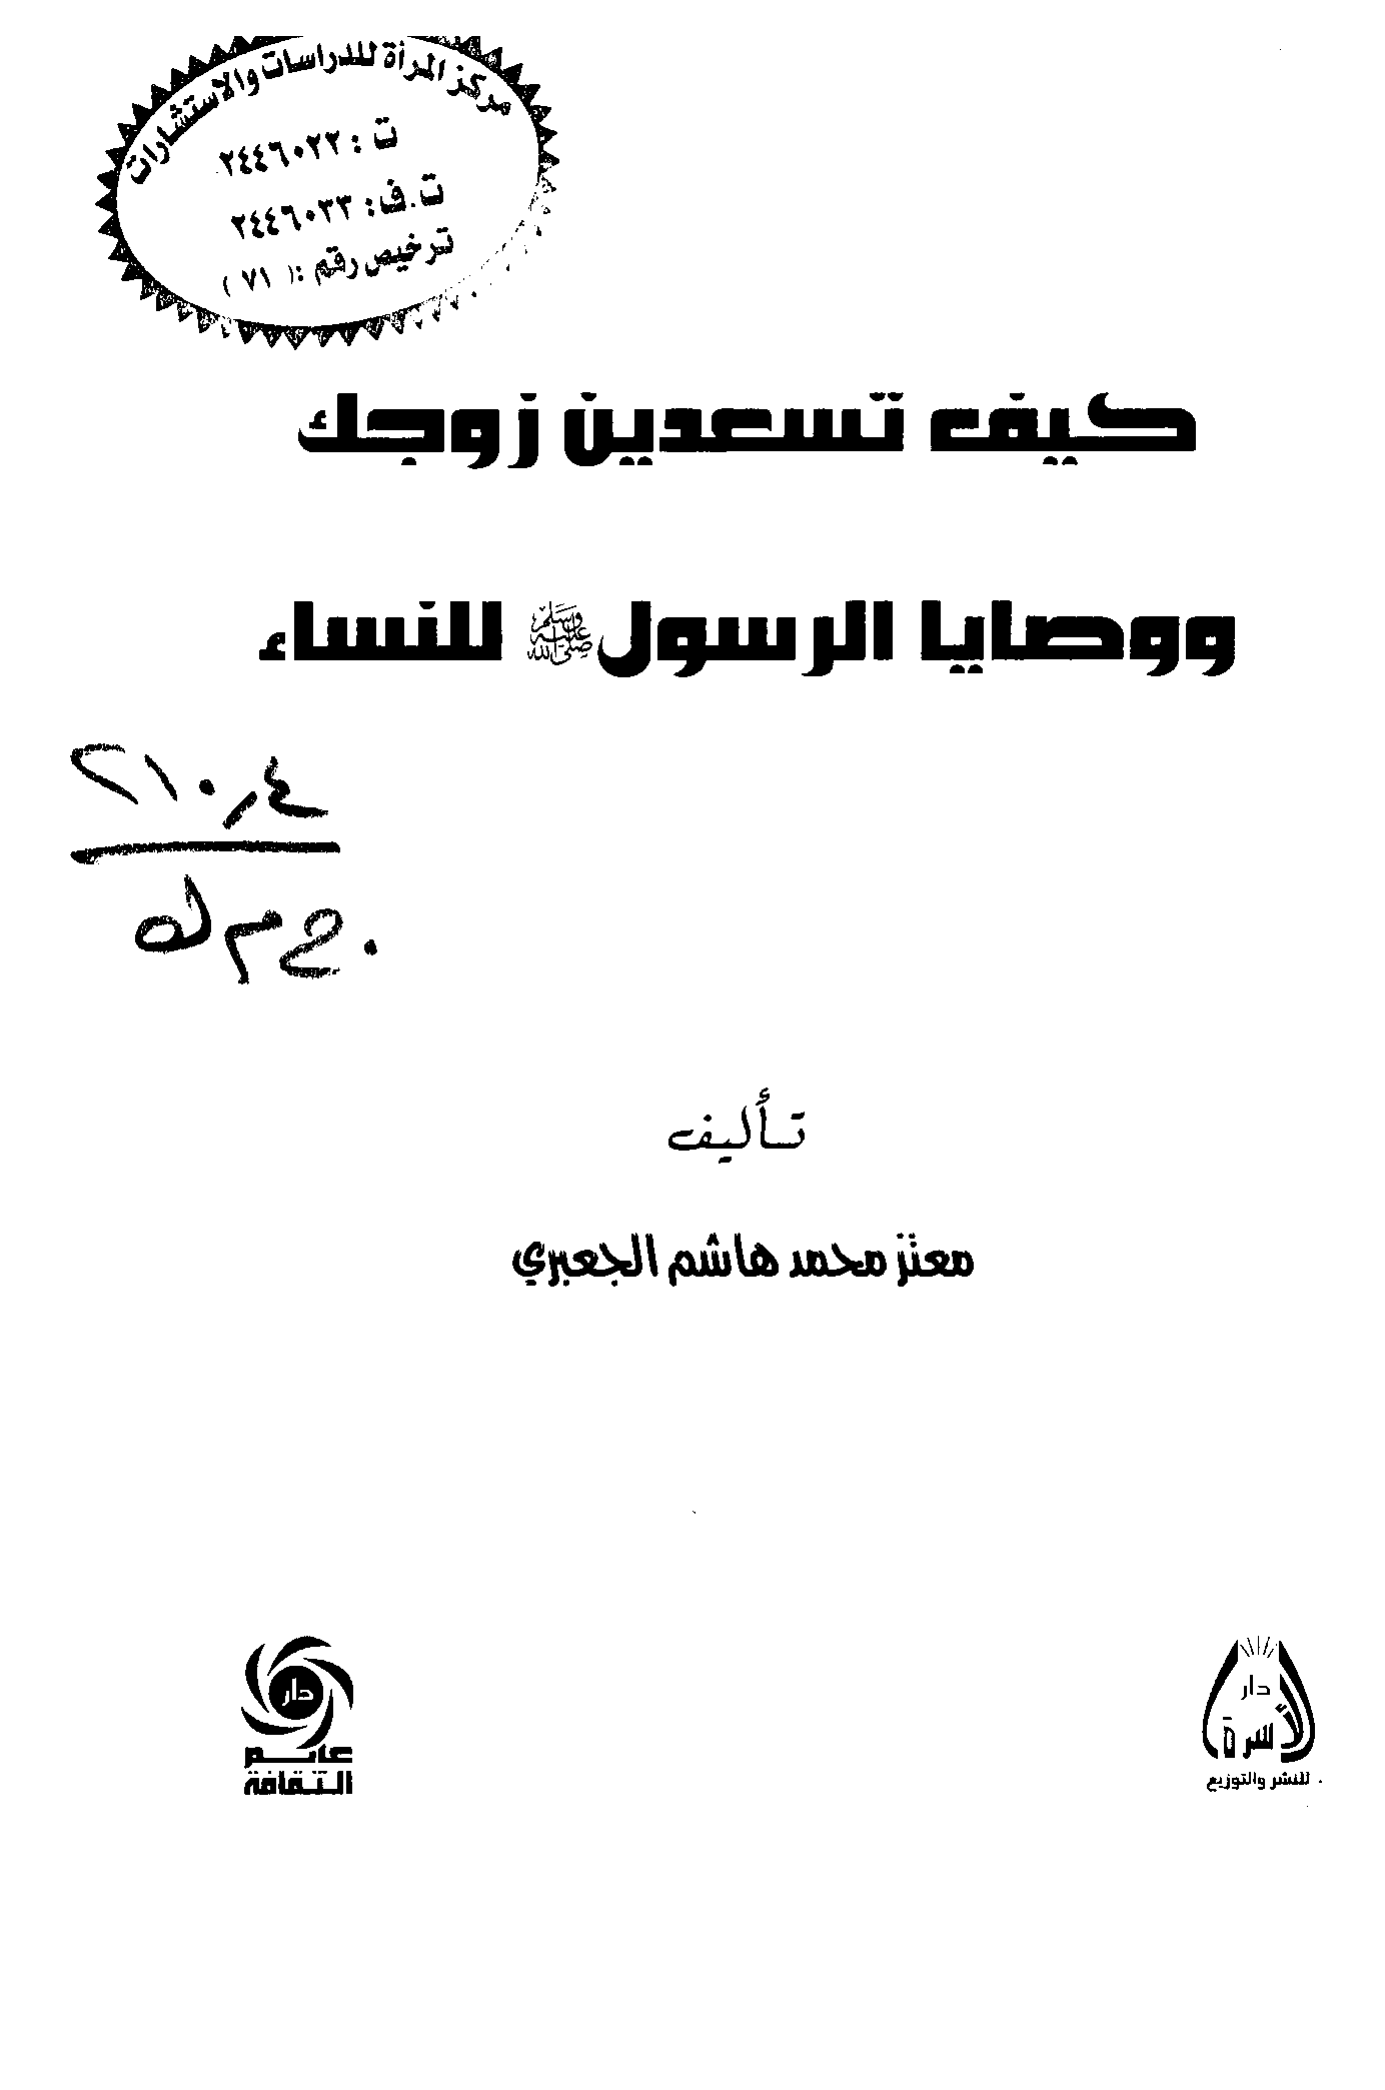 مركز المرأة للدراسات والاستشارات
ت : ٢٤٤٦٠٢٢
ت.ف: ٢٤٤٦٠٣٣
ترخيص رقم :( ٧١ )
كيف تسعدين زوجك
ووصايا الرسول ﷺ للنساء
٢١٠٫٤
ج م ك
تأليف
معتز محمد هاشم الجعبري
دار
الأسرة
للنشر والتوزيع
دار
عالم
الثقافة